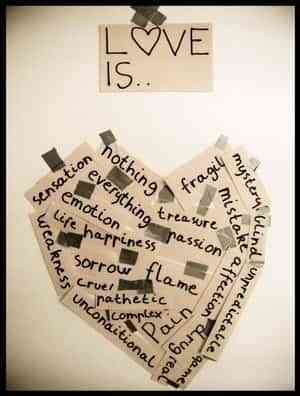 L♡VE
IS..
sensation
nothing
everything
emotion
treasure
life
happiness
passion
weakness
sorrow
flame
cruel
pathetic
complex
pain
unconditional
fragile
mystery
mistake
blind
affection
unpredictable
drug
real
game